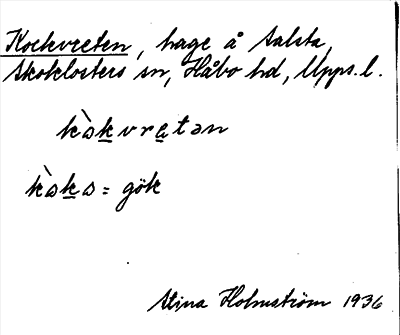 Kockvreten, hage å Salsta,
Skoklosters sn, Håbo hd, Upps. l.
kòkvretən
kòkə = gök
Stina Holmström 1936